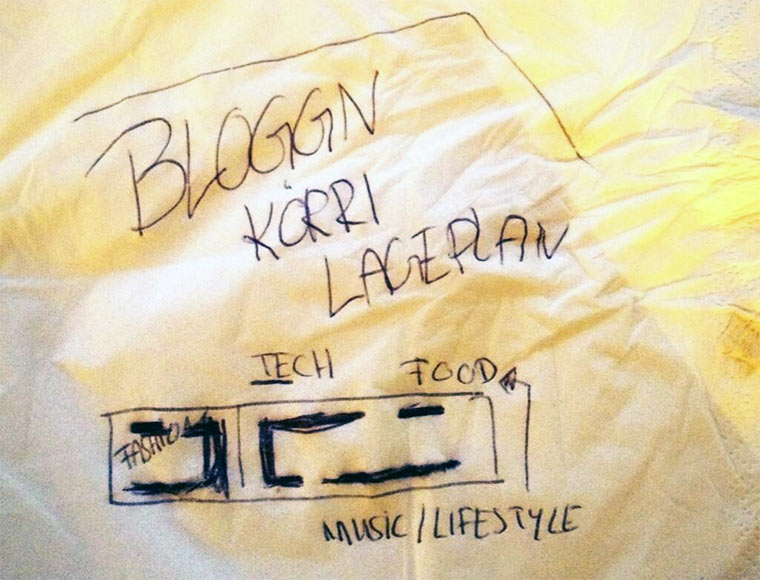 BLOGGN
KÖRRI
LAGEPLAN
TECH FOOD
FASHION
MUSIC/LIFESTYLE